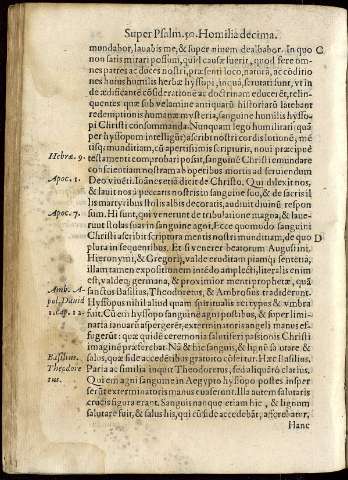 Super Psalm. 50. Homilia decima.
mundabor, lauabis me, & super niuem dealbabor. In quo C
non satis mirari possum, quid causæ fuerit, quod fere omnes
patres ac doces nostri, præsenti loco, naturã, ac cõditiones
huius humilis herbæ hyssopi, inquã, scrutati sunt, vt in
de ædificante cõsideratione ac doctrinam educerēt, relinquentes
quæ sub velamine antiquarũ historiarũ latebant
redemptionis humanæ mysteria, sanguine humilis hyssopi
Christi consummanda. Nunquam lego humilitati quãquã
per hyssopum intelligūt, ascribi nostri cordis lotionē, mētisq;
munditiam, cũ apertissimis scripturis, noui præcipuè
Hebræ. 9. testamenti comprobari possit, sanguinē Christi emundare
conscientiam nostram ab operibus mortis ad seruiendum
Apoc. 1. Deo viuēti. Ioannes etiã dicit de Christo. Qui dilexit nos,
& lauit nos à peccatis nostris in sanguine suo, & de sacris illis
martyribus stolis albis decoratis, audiuit diuinũ respon
Apoc. 7. sum. Hi sunt, qui venerunt de tribulatione magna, & lauerunt
stolas suas in sanguine agni. Ecce quomodo sanguini
Christi ascribit scriptura mentis nostræ munditiam, de quo D
plura in sequentibus. Et si venerer beatorum Augustini,
Hieronymi, & Gregorij, valde eruditam piamq; sententiã,
illam tamen expositionem intēdo amplecti, literalis enim
est, valdeq; germana, & proximior menti prophetæ, quã
Amb. A- sanctus Basilius, Theodoretus, & Ambrosius tradiderunt.
pol. Dauid Hyssopus nihil aliud quam spiritualis rei typus & vmbra
2. cap. 12. fuit. Cũ em hyssopo sanguine agni postibus, & superliminaria
ianuarũ aspergerēt, exterminatoris angeli manus effugerũt:
quæ quidē ceremonia salutiferi passionis Christi
imaginē præferebat. Nã & hic sanguis, & lignũ salutare &
Basilius. salos, quæ fide accedētibus gratuito cõfertur. Hæc Basilius.
Theodore Paria ac similia inquit Theodoretus, sed aliquãto clarius.
tus. Qui em agni sanguine in Aegypto hyssopo postes inspersērũt
exterminatoris manus euaserunt. Illa autem salutaris
crucis figura erant. Sanguis nanque etiam hic, & lignum
salutare fuit, & salus his, qui cũ fide accedebãt, afferebatur.
Hanc